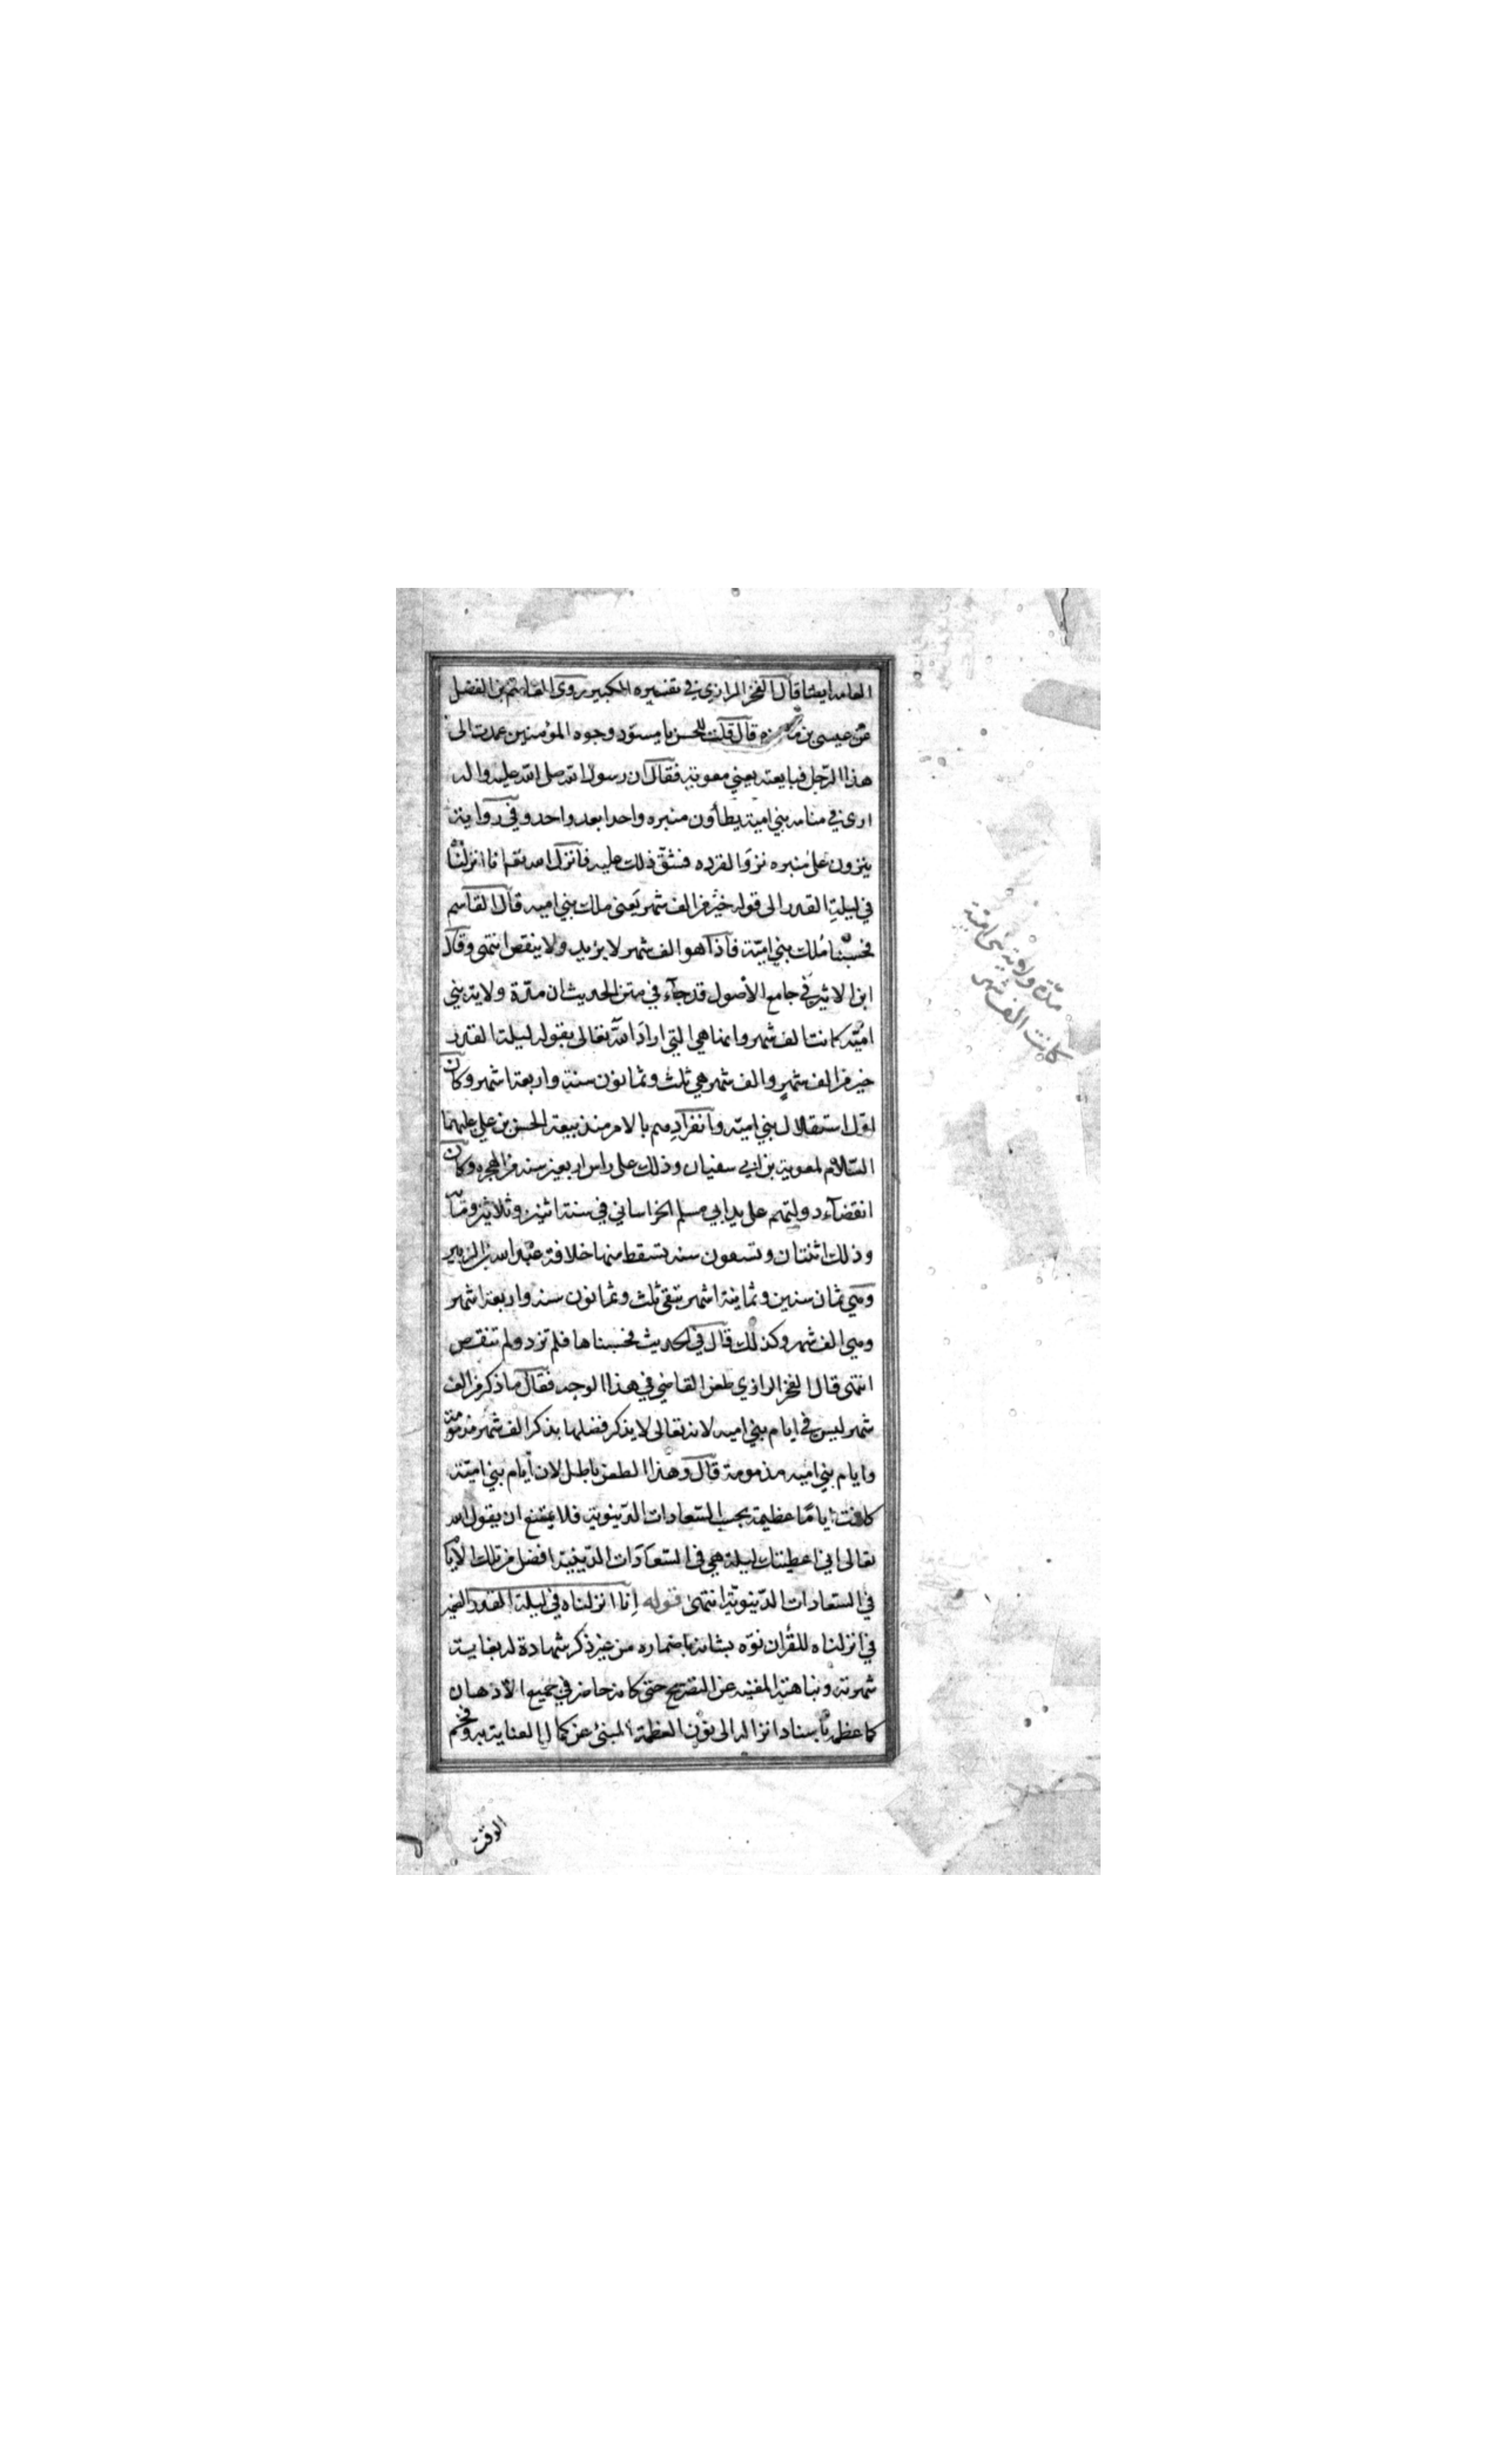 العامه ايضا قال الفخر الرازي في تفسيره الكبير روى القاسم بن الفضل
عن عيسى بن قال قلت للحسن يا مسود وجوه المؤمنين عمدت الى
هذا الرجل فبايعته يعني معوية فقال ان رسول الله صلى الله عليه واله
ارى في منامه بني امية يطأون منبره واحدا بعد واحد وفي رواية
ينزون على منبره نزو القرده فشق ذلك عليه فانزل الله تعـ انا انزلناه
في ليلة القدر الى قوله خير من الف شهر يعني ملك بني اميه قال القاسم
فحسبنا ملك بني امية فاذا هو الف شهر لا يزيد ولا ينقص انتهى وقال
ابن الاثير في جامع الأصول قد جاء في متن الحديث ان مدة ولاية بني
امية كانت الف شهر وانما هي التي اراد الله تعالى بقوله ليلة القدر
خير من الف شهر والف شهر هي ثلث وثمانون سنة واربعة اشهر وكان
اول استقلال بني امية وانفرادهم بالامر منذ بيعة الحسن بن علي عليهما
السلام لمعوية بن ابي سفيان وذلك على راس اربعين سنه من الهجره وكان
انقضاء دولتهم على يد ابي مسلم الخراساني في سنة اثنين وثلاثين ومأة
وذلك اثنتان وتسعون سنه تسقط منها خلافة عبد الله بن الزبير
وهي ثمان سنين وثمانية اشهر تبقى ثلث وثمانون سنه واربعة اشهر
وهي الف شهر وكذلك قال في الحديث فحسبناها فلم تزد ولم تنقص
انتهى قال الفخر الرازي طعن القاضي في هذا الوجه فقال ما ذكر من الف
شهر ليس في ايام بني اميه لانه تعالى لا يذكر فضلها بذكر الف شهر مذمومة
وايام بني اميه مذمومة قال وهذا الطعن باطل لان أيام بني امية
كانت اياما عظيمة بحسب السعادات الدنيوية فلا يمتنع ان يقول الله
تعالى اني اعطيتك ليلة هي في السعادات الدينية افضل من تلك الأيام
في السعادات الدنيوية انتهى قوله إنا انزلناه في ليلة القدر الضمير
في انزلناه للقرأن نوه بشانه باضماره من غير ذكر شهادة له بغاية
شهرته ونباهته المغنيه عن التصريح حتى كانه حاضر في جميع الأذهان
كما عظمه بأسناد انزاله الى نون العظمة المبنئ عن كمال العناية به وفخم
الوقت
مدة ولاية بني امية
كانت الف شهر